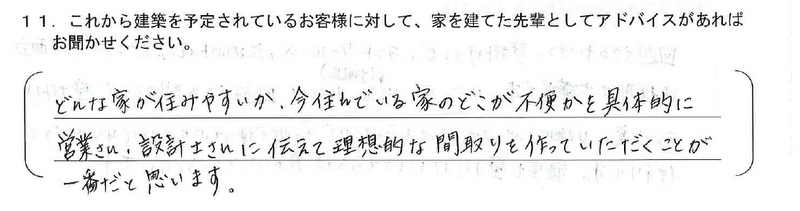 １１．これから建築を予定されているお客様に対して、家を建てた先輩としてアドバイスがあれば
お聞かせください。
どんな家が住みやすいか、今住んでいる家のどこが不便かを具体的に
営業さん、設計士さんに伝えて理想的な間取りを作っていただくことが
一番だと思います。